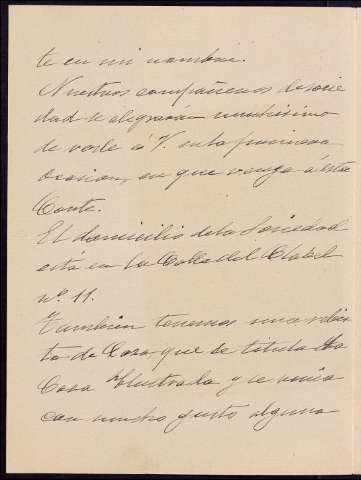 te en mi nombre.
Nuestros compañeros de socie
dad se alegrarán muchisimo
de verle á V. en la primera
ocasion, en que venga á esta
Corte.
El domicilio de la Sociedad
está en la Calle del Clavel
nº. 11.
Tambien tenemos una revis
ta de Caza, que se titula La
Caza Ilustrada y se veria
con mucho gusto alguna